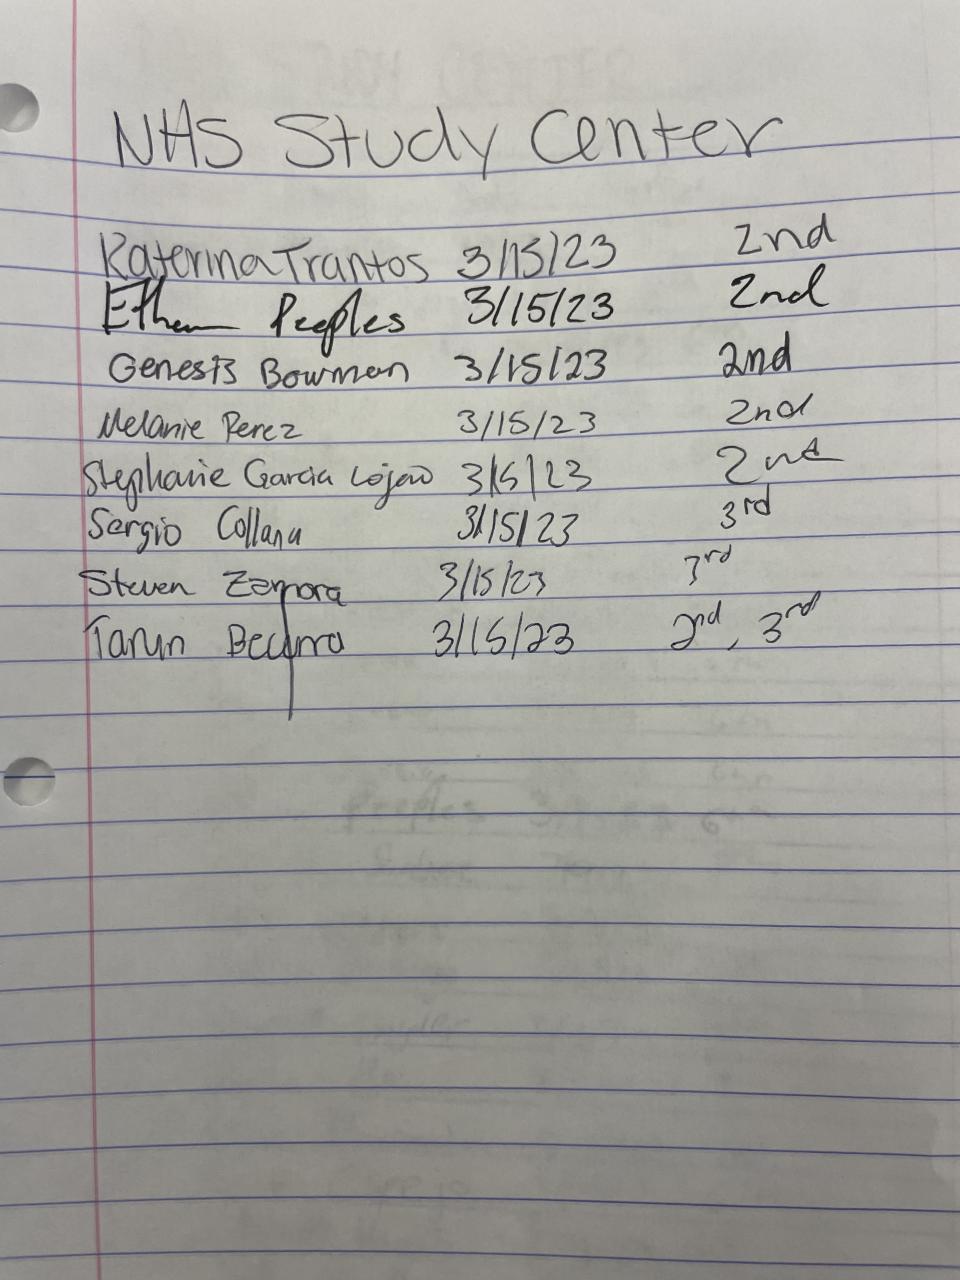 NHS Study Center
Katerina Trantos 3/15/23 2nd
Ethan Peeples 3/15/23 2nd
Genesis Bowman 3/15/23 2nd
Melanie Perez 3/15/23 2nd
Stephanie Garcia 3/15/23 2nd
Sergio Collana 3/15/23 3rd
Steven Zamora 3/15/23 3rd
3/15/23 2nd, 3rd